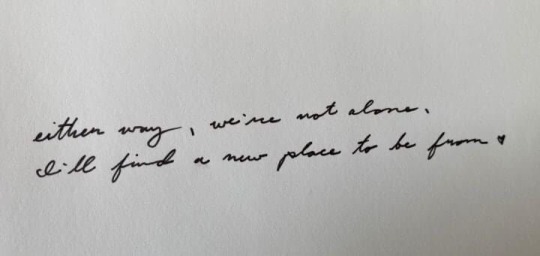 either way, we're not alone.
I'll find a new place to be from ♥